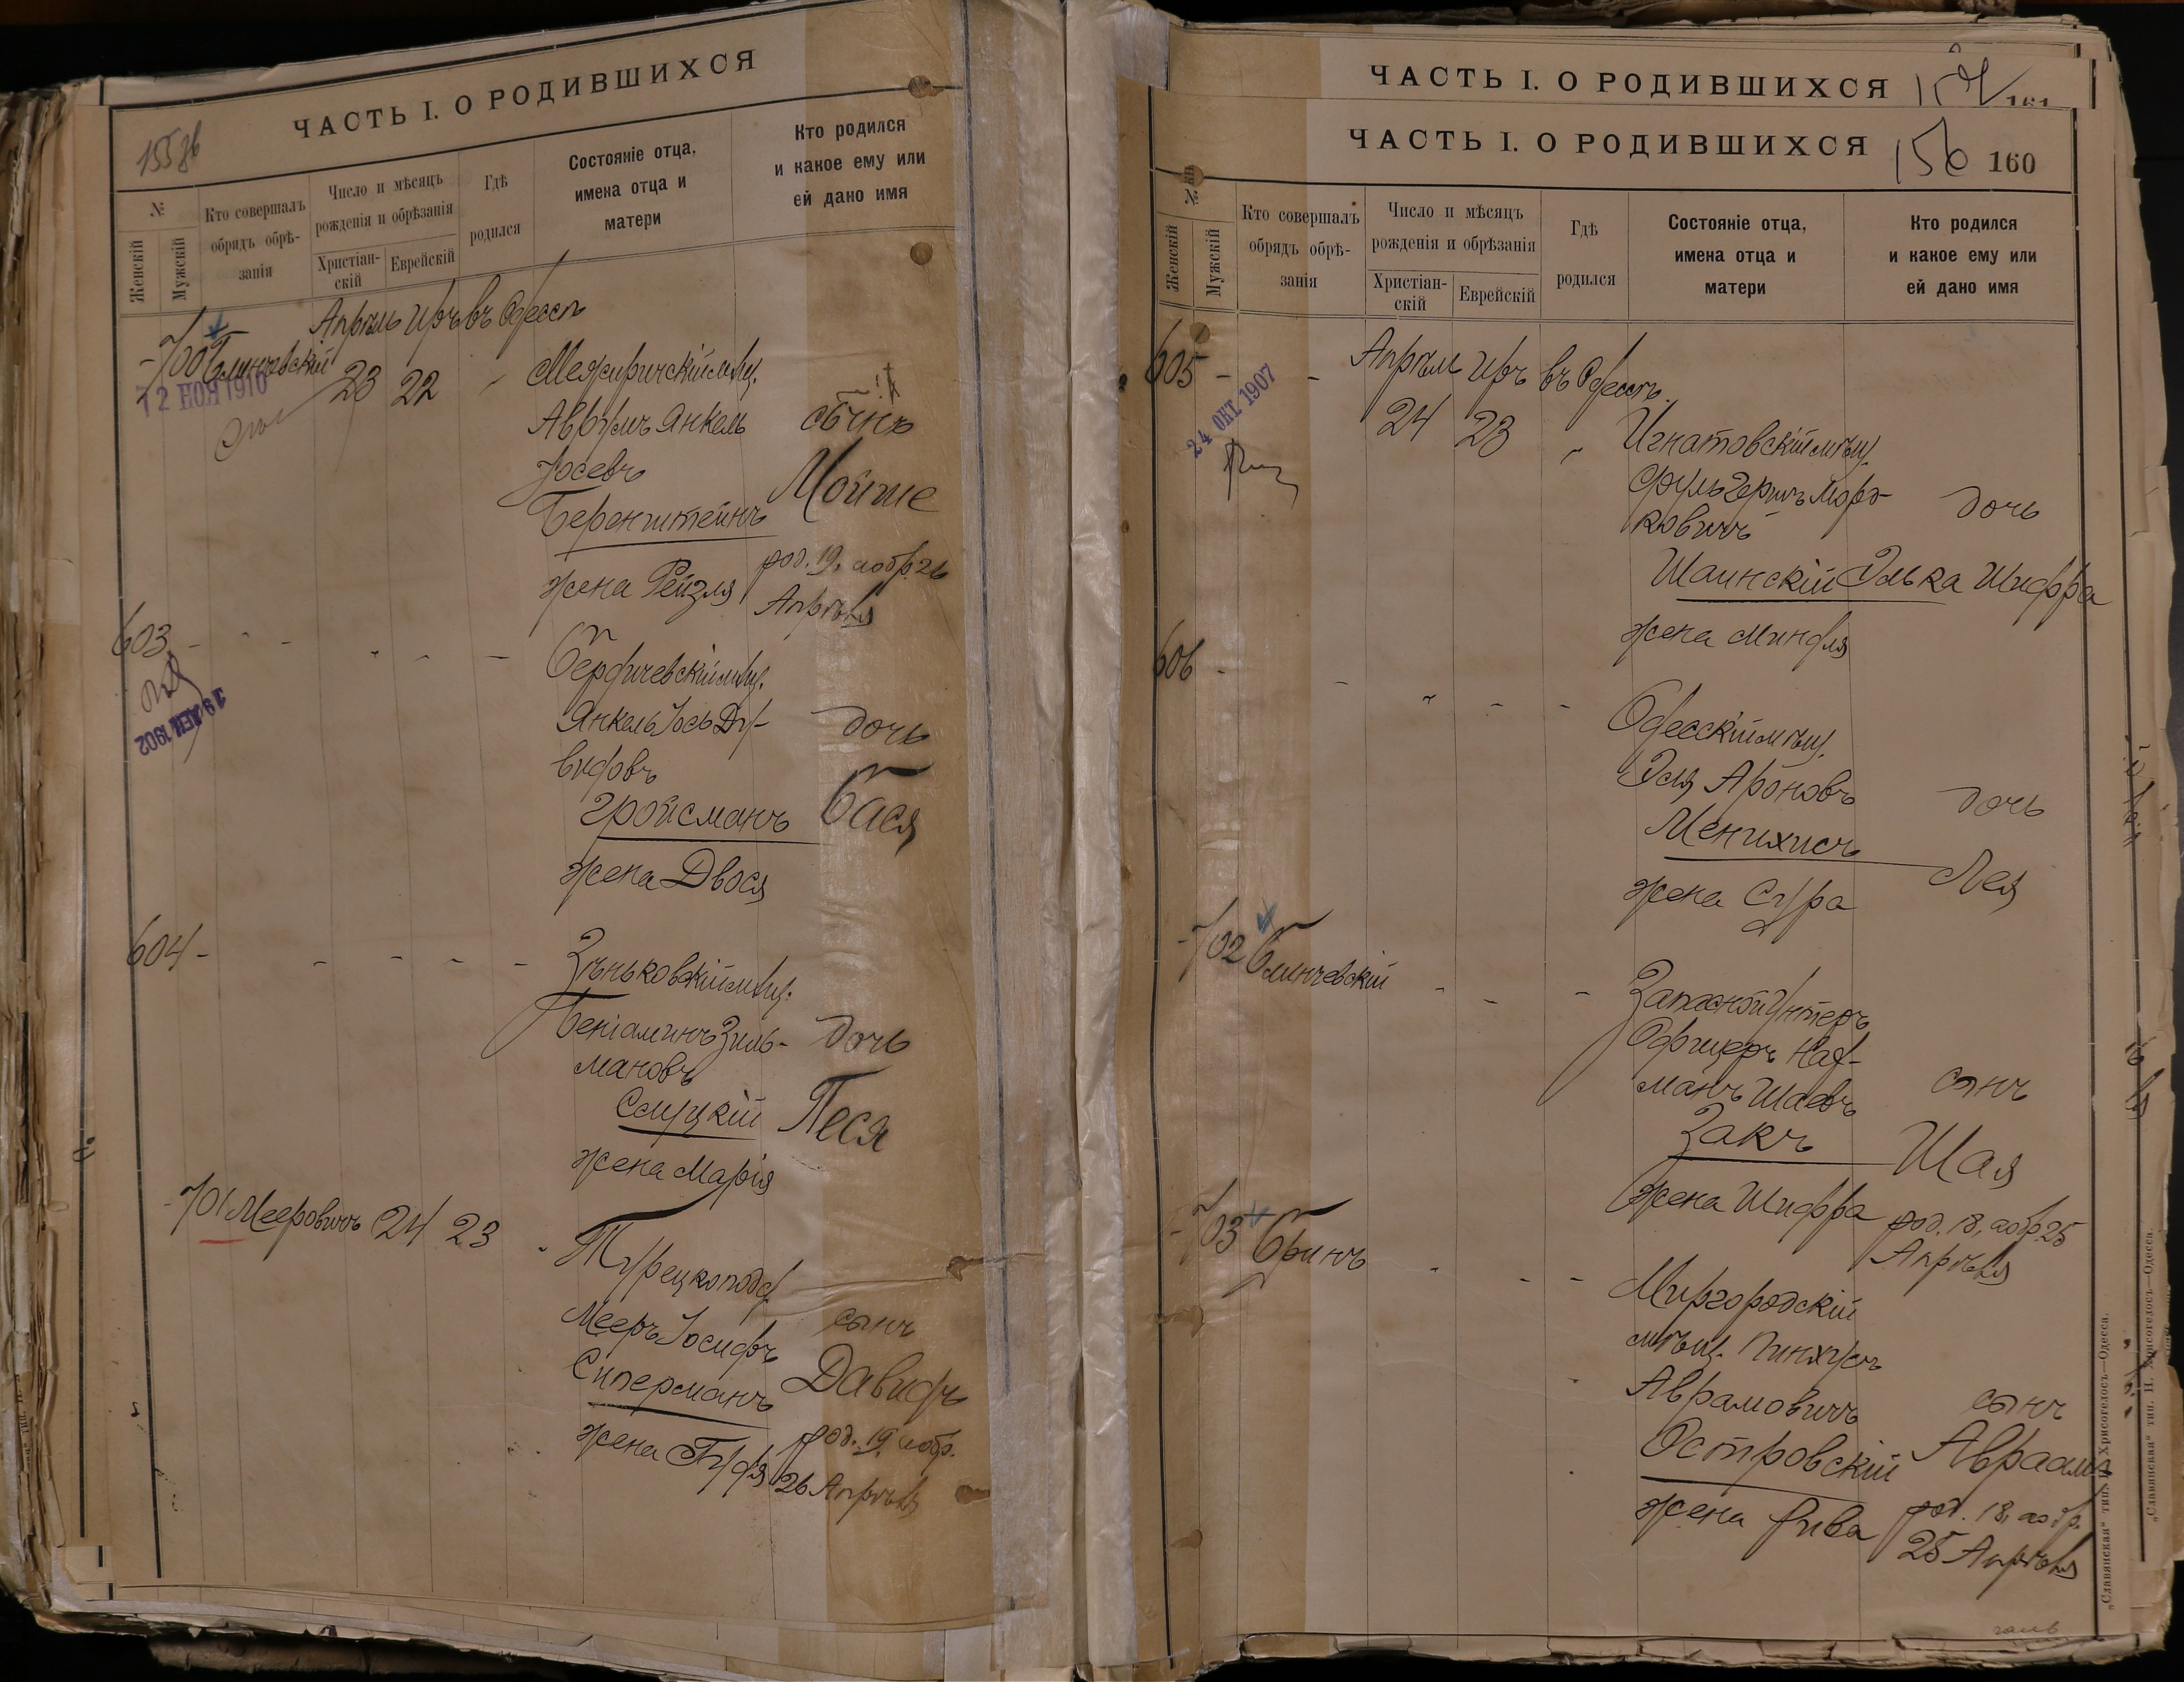 ЧАСТЬ I. О РОДИВШИХСЯ
№
Женскій
Мужскій
Кто совершалъ
обрядъ обрѣ-
занія
Число и мѣсяцъ
рожденія и обрѣзанія
Христіан-
скій
Еврейскій
Гдѣ
родился
Состояніе отца,
имена отца и
матери
Кто родился
и какое ему или
ей дано имя
Апрѣль Иръ въ Одессѣ
700 Блинчевскій 23 22
12 НОЯ 1910
Межиричскій мѣщ.
Аврумъ Янкель
Іосевъ
Беренштейнъ
жена Рейзля
сынъ
Мойше
род. 19, а обр. 26
Апрѣля
603
19 ДЕК 1902
Бердичевскій мѣщ.
Янкель Іось Ду-
видовъ
Гройсманъ
жена Двося
дочь
Бася
604
Зѣньковскій мѣщ.
Беніаминъ Зиль-
мановъ
Слуцкій
жена Марія
дочь
Песя
701 Мееровичъ 24 23
Турецкоподд.
Мееръ Іосифъ
Сиперманъ
жена
сынъ
Давидъ
род. 19, а обр.
26 Апрѣля
ЧАСТЬ I. О РОДИВШИХСЯ
161
ЧАСТЬ I. О РОДИВШИХСЯ 156 160
№
Женскій
Мужскій
Кто совершалъ
обрядъ обрѣ-
занія
Число и мѣсяцъ
рожденія и обрѣзанія
Христіан-
скій
Еврейскій
Гдѣ
родился
Состояніе отца,
имена отца и
матери
Кто родился
и какое ему или
ей дано имя
605 Апрѣль Иръ въ Одессѣ
24 23
24 ОКТ 1907
Игнатовскій мѣщ.
Сруль Гершъ Мор-
ковичъ
Шаинскій
жена Миндля
дочь
Элька Шифра
606
Одесскій мѣщ.
Эля Ароновъ
Менихисъ
жена Сура
дочь
Лея
702 Блинчевскій
Запасной Унтеръ
Офицеръ Нах-
манъ Шаевъ
Закъ
жена Шифра
сынъ
Шая
род. 18, а обр. 25
Апрѣля
703 Бринъ
Миргородскій
мѣщ. Пинхусъ
Аврамовичъ
Островскій
жена Рива
сынъ
Авраамъ
род. 18, а обр.
25 Апрѣля
„Славянская“ тип. Н. Хрисогелосъ—Одесса.
„Славянская“ тип. Н. Хрисогелосъ—Одесса.